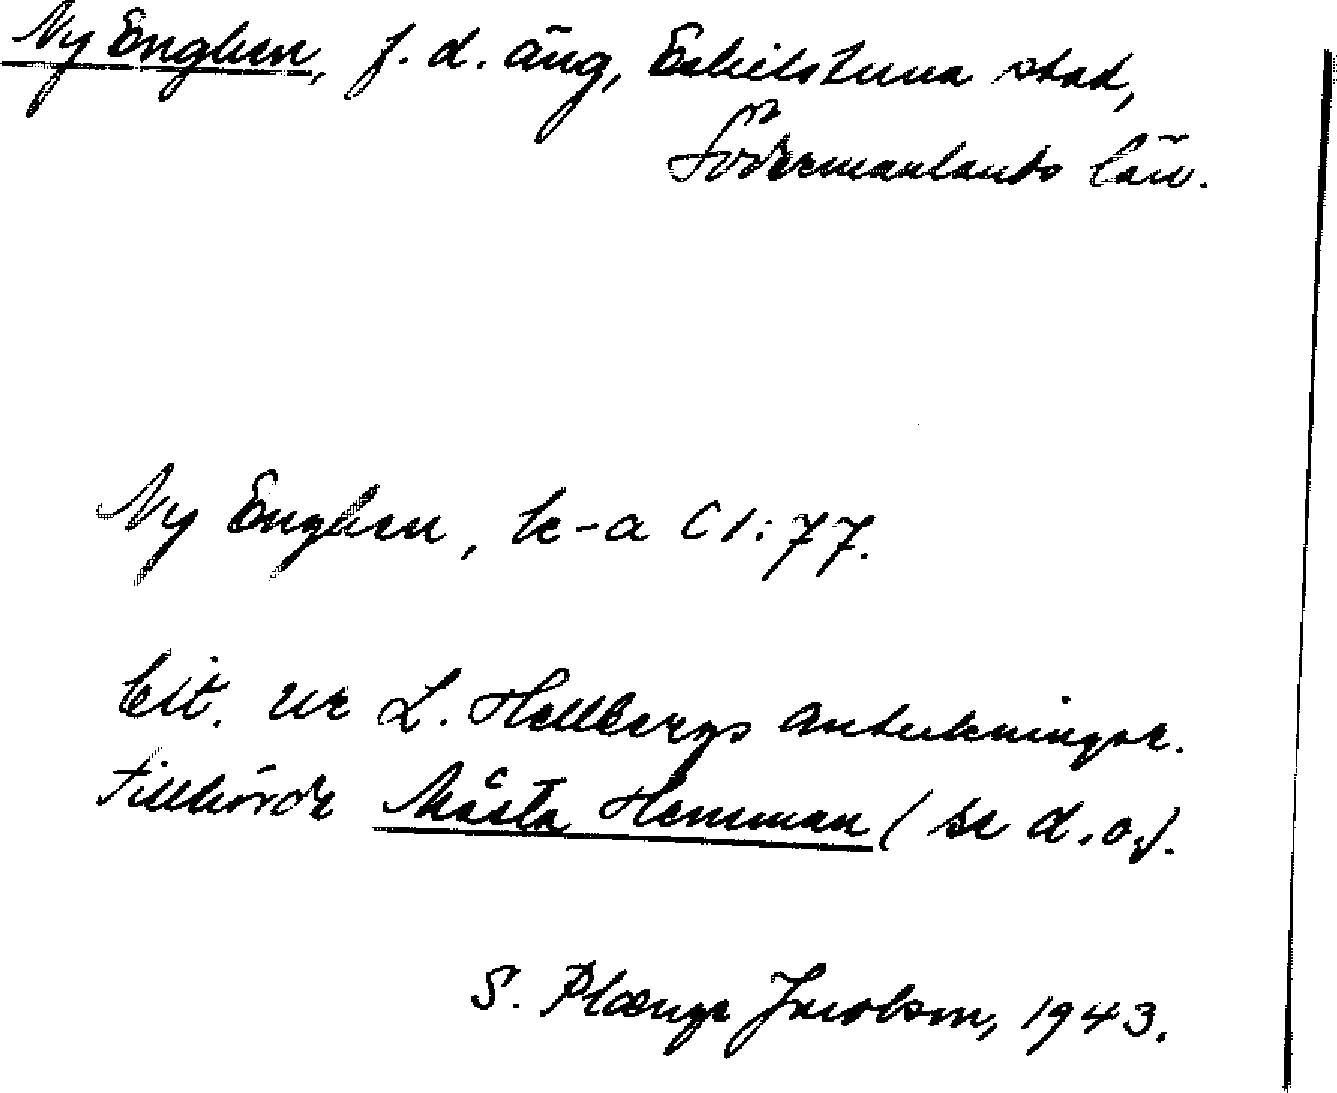 Ny Enghen, f. d. äng, Eskilstuna stad,
Södermanlands län.
Ny Enghen, k-a C1:77.
Cit. ur L. Hellbergs anteckningar.
Tillhörde Måsta Hemman (se d.o.).
S. Plænge Jacobson, 1943.